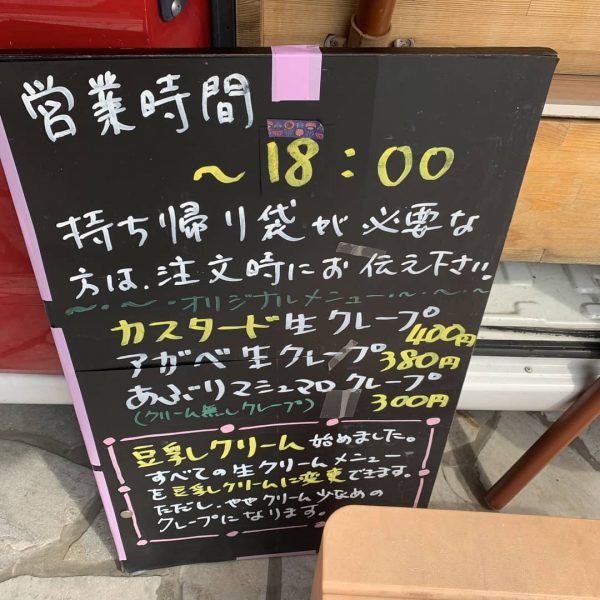 営業時間
～18:00
持ち帰り袋が必要な
方は、注文時にお伝え下さい。
～・～・オリジナルメニュー・～・～・～
カスタード生クレープ 400円
アガベ生クレープ 380円
あぶりマシュマロクレープ 300円
(クリーム無しクレープ)
豆乳クリーム始めました。
すべての生クリームメニュー
を豆乳クリームに変更できます。
ただし、ややクリーム少なめの
クレープになります。